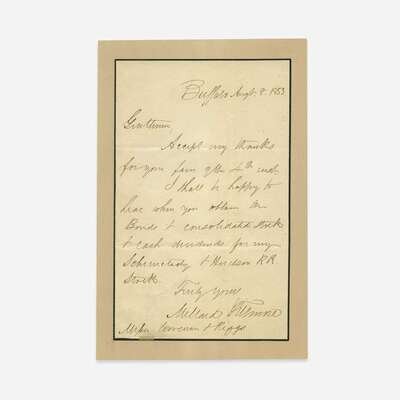 Buffalo Augt. 8. 1853
Gentlemen,
Accept my thanks
for your favr of the 4th inst
I shall be happy to
hear when you obtain the
Bonds & consolidated stock
& cash dividends for my
Schenectady & Hudson RR
Stock.
Truly yours
Millard Fillmore
Messrs Corcoran & Riggs